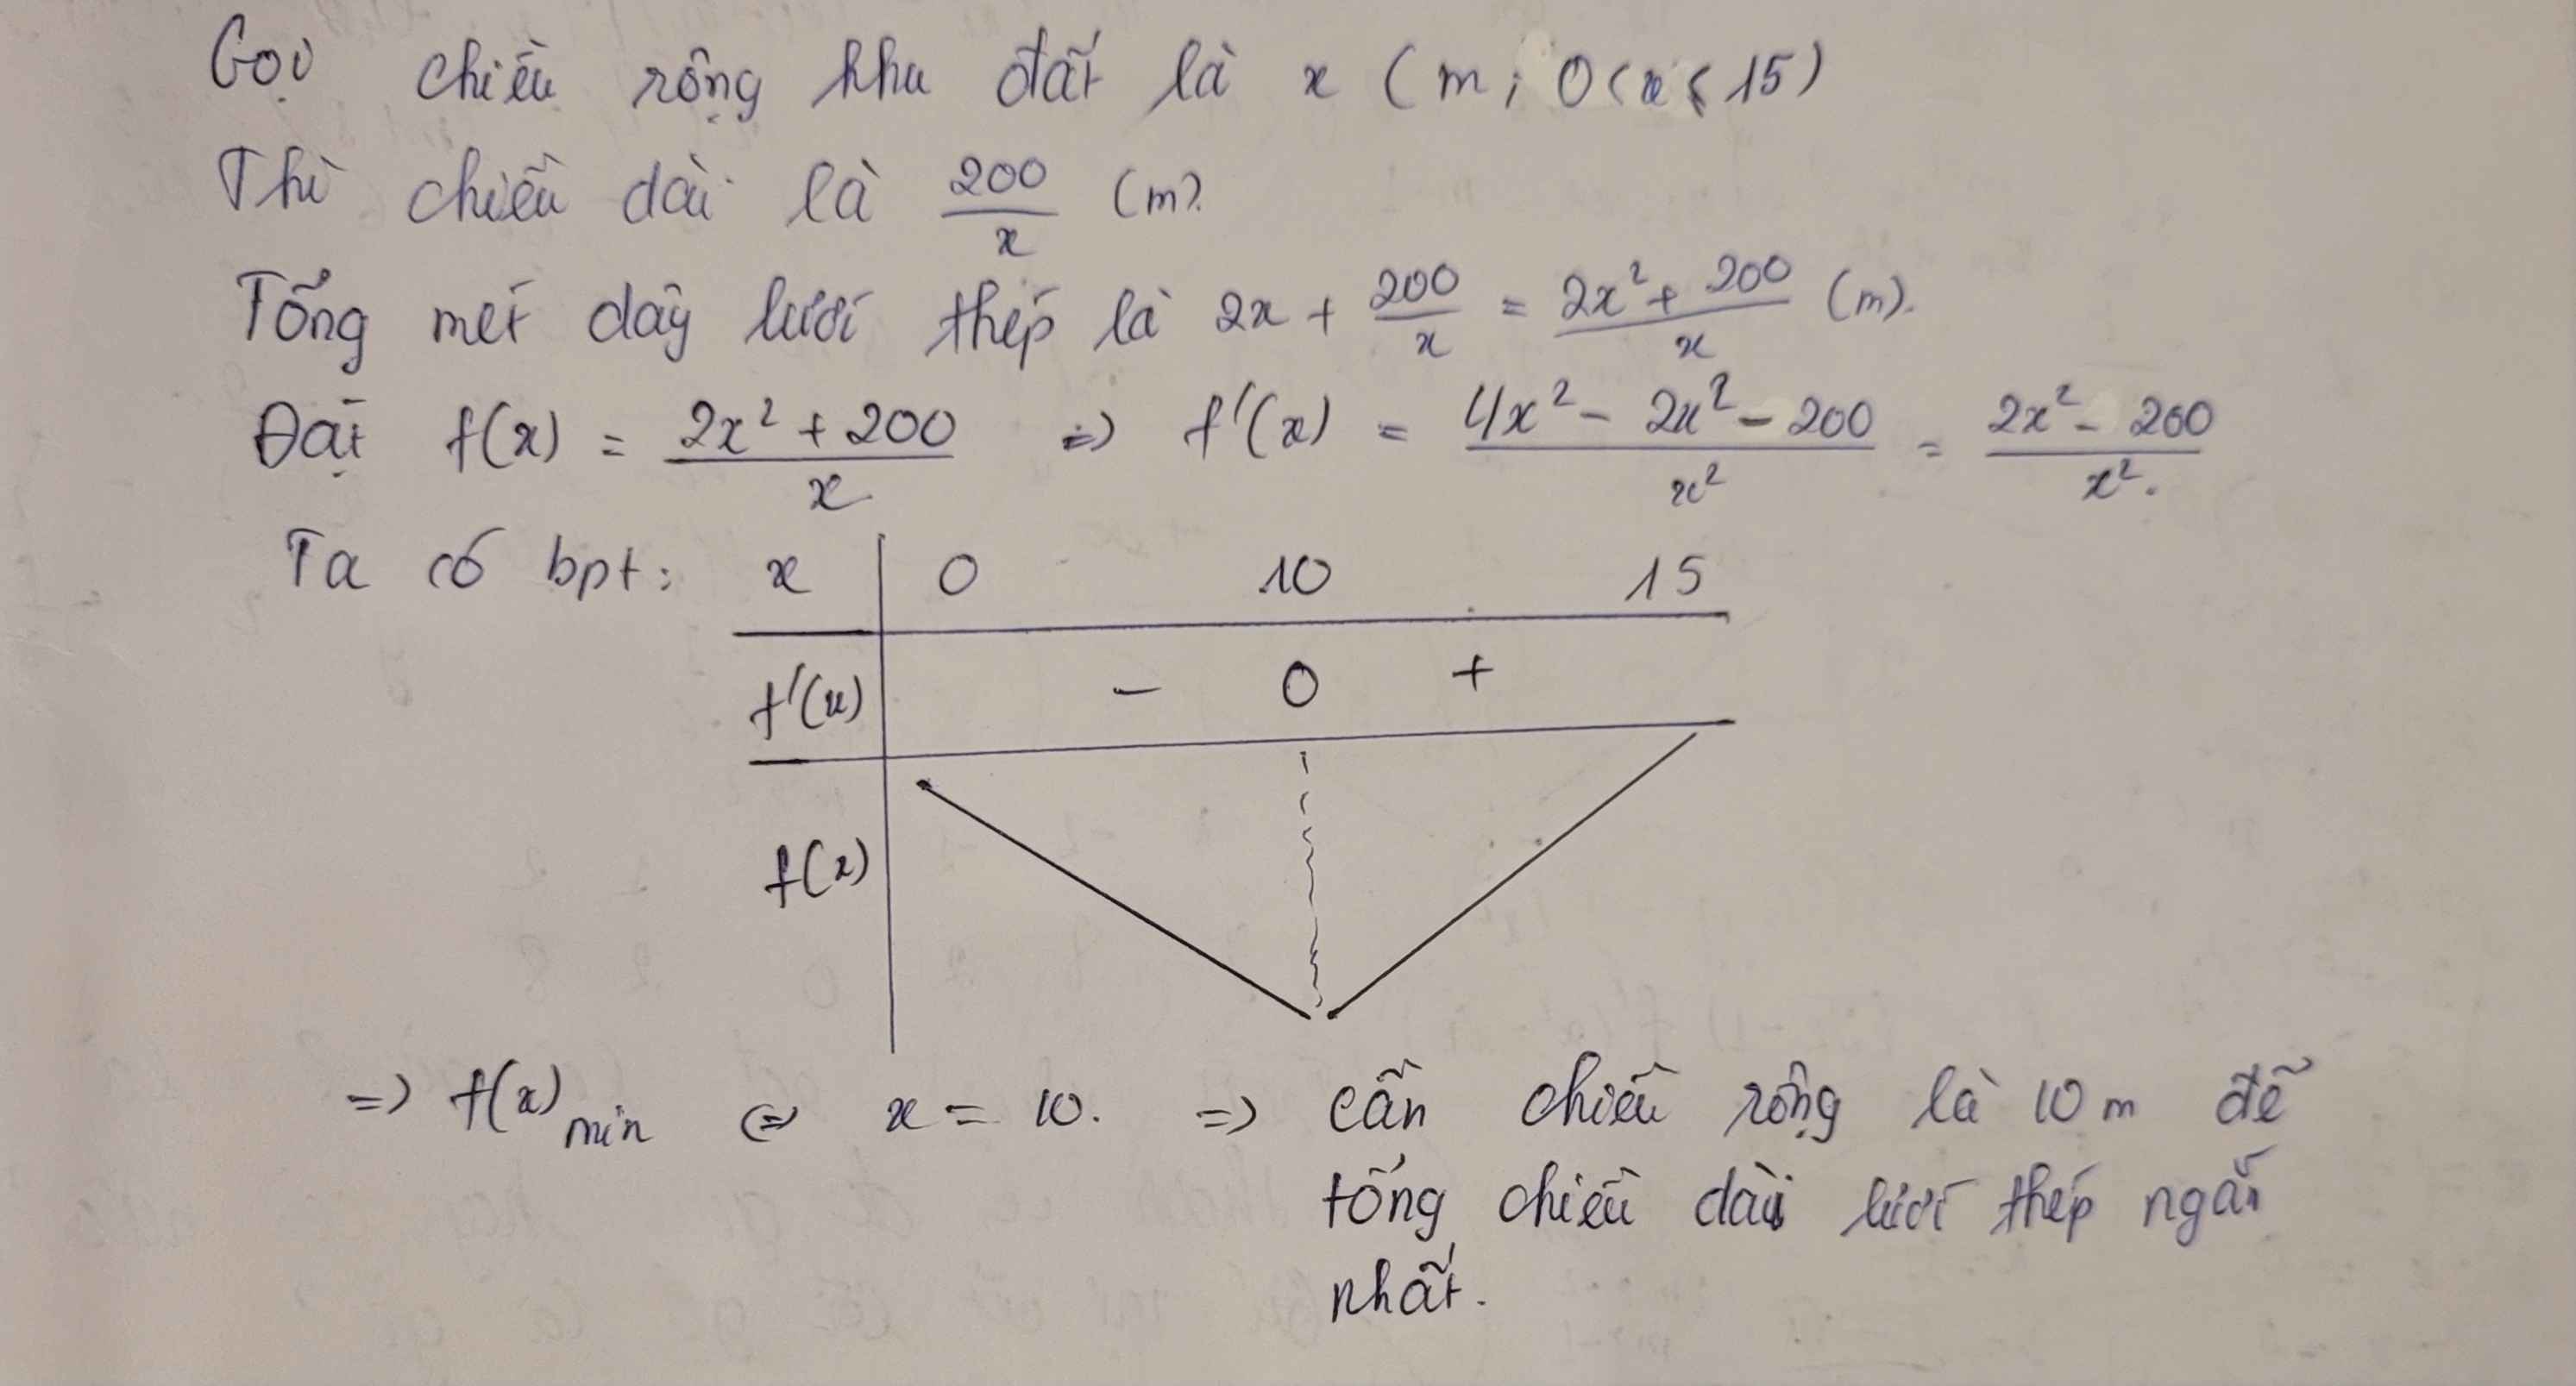 Gọi chiều rộng khu đất là x (m; 0<x<15)
Thì chiều dài là 200/x (m).
Tổng mét dây lưới thép là 2x + 200/x = (2x² + 200)/x (m).
Đặt f(x) = (2x² + 200)/x => f'(x) = (4x² - 2x² - 200)/x² = (2x² - 200)/x².
Ta có bpt: x 0 10 15
f'(x) - 0 +
f(x)
=> f(x) min <=> x = 10. => cần chiều rộng là 10 m để
tổng chiều dài lưới thép ngắn
nhất.